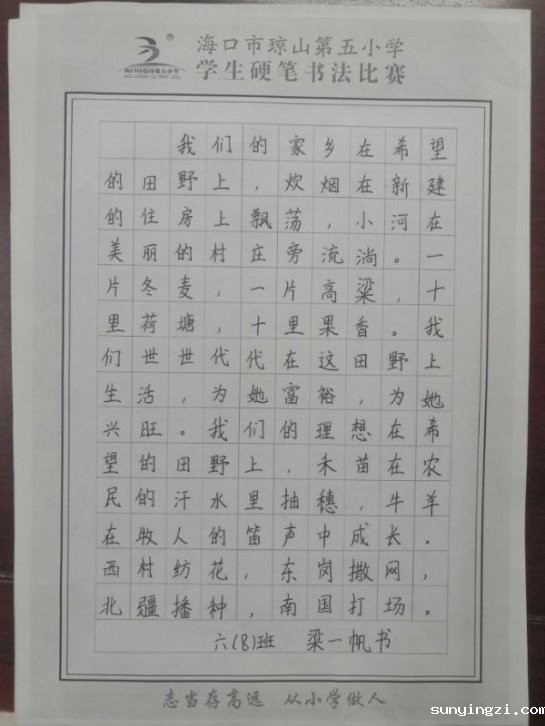 海口市琼山第五小学
学生硬笔书法比赛
我们的家乡在希望
的田野上，炊烟在新建
的住房上飘荡，小河在
美丽的村庄旁流淌。一
片冬麦，一片高粱，十
里荷塘，十里果香。我
们世世代代在这田野上
生活，为她富裕，为她
兴旺。我们的理想在希
望的田野上，禾苗在农
民的汗水里抽穗，牛羊
在牧人的笛声中成长。
西村纺花，东岗撒网，
北疆播种，南国打场。
六(8)班 梁一帆书
志当存高远 从小学做人
sunyingzi.com